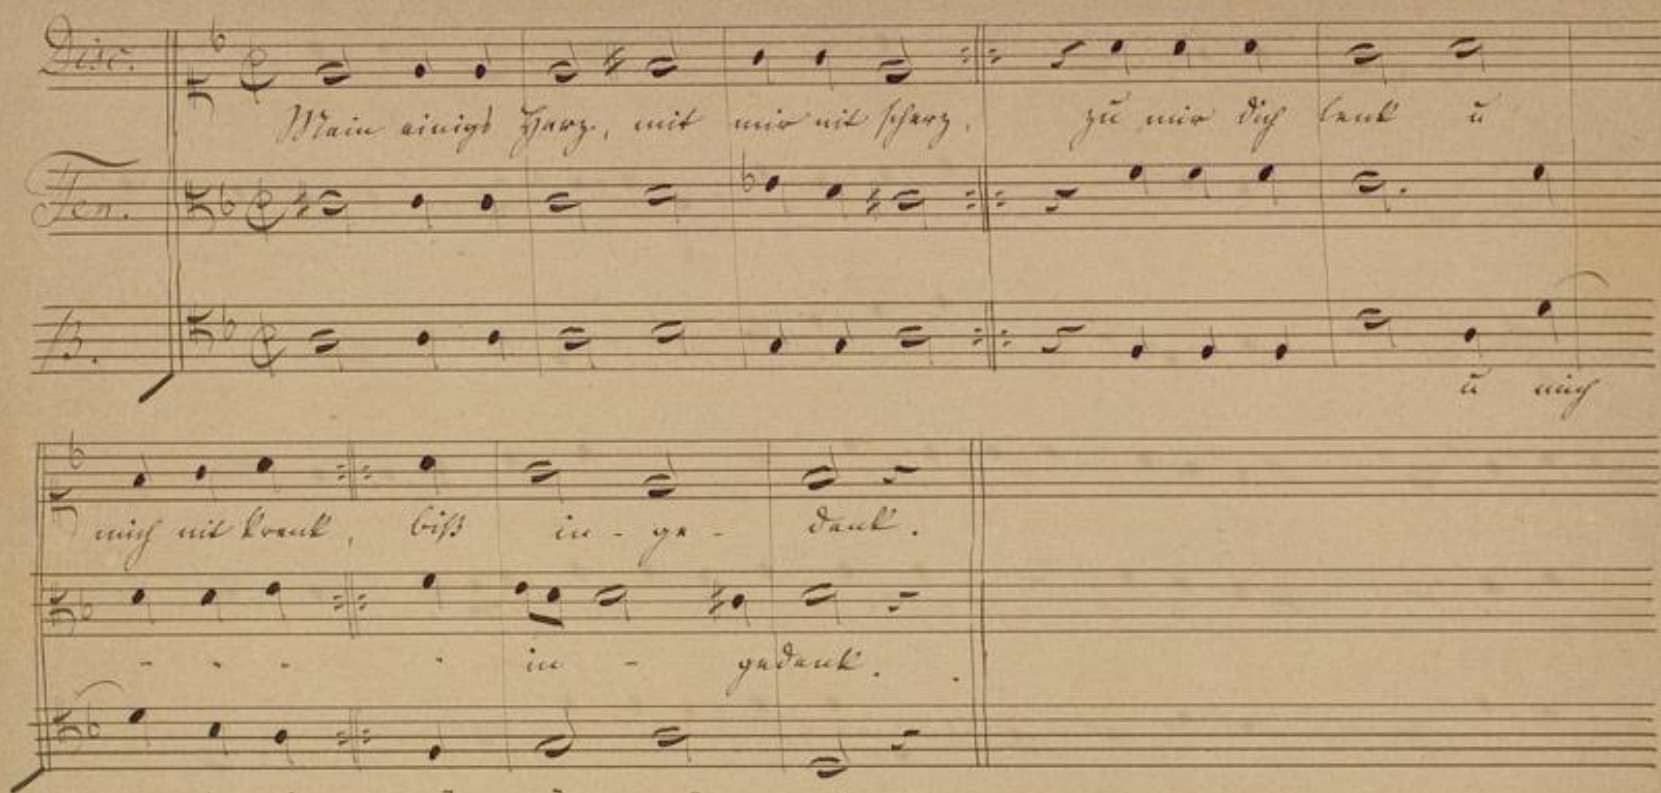 Disc.
Mein einigs Herz, mit mir nit scherz, zu mir dich lenk u̅
Ten.
B.
u̅ mich
mich nit krenk, biß in - ge - denk.
- - - - in - gedenk.